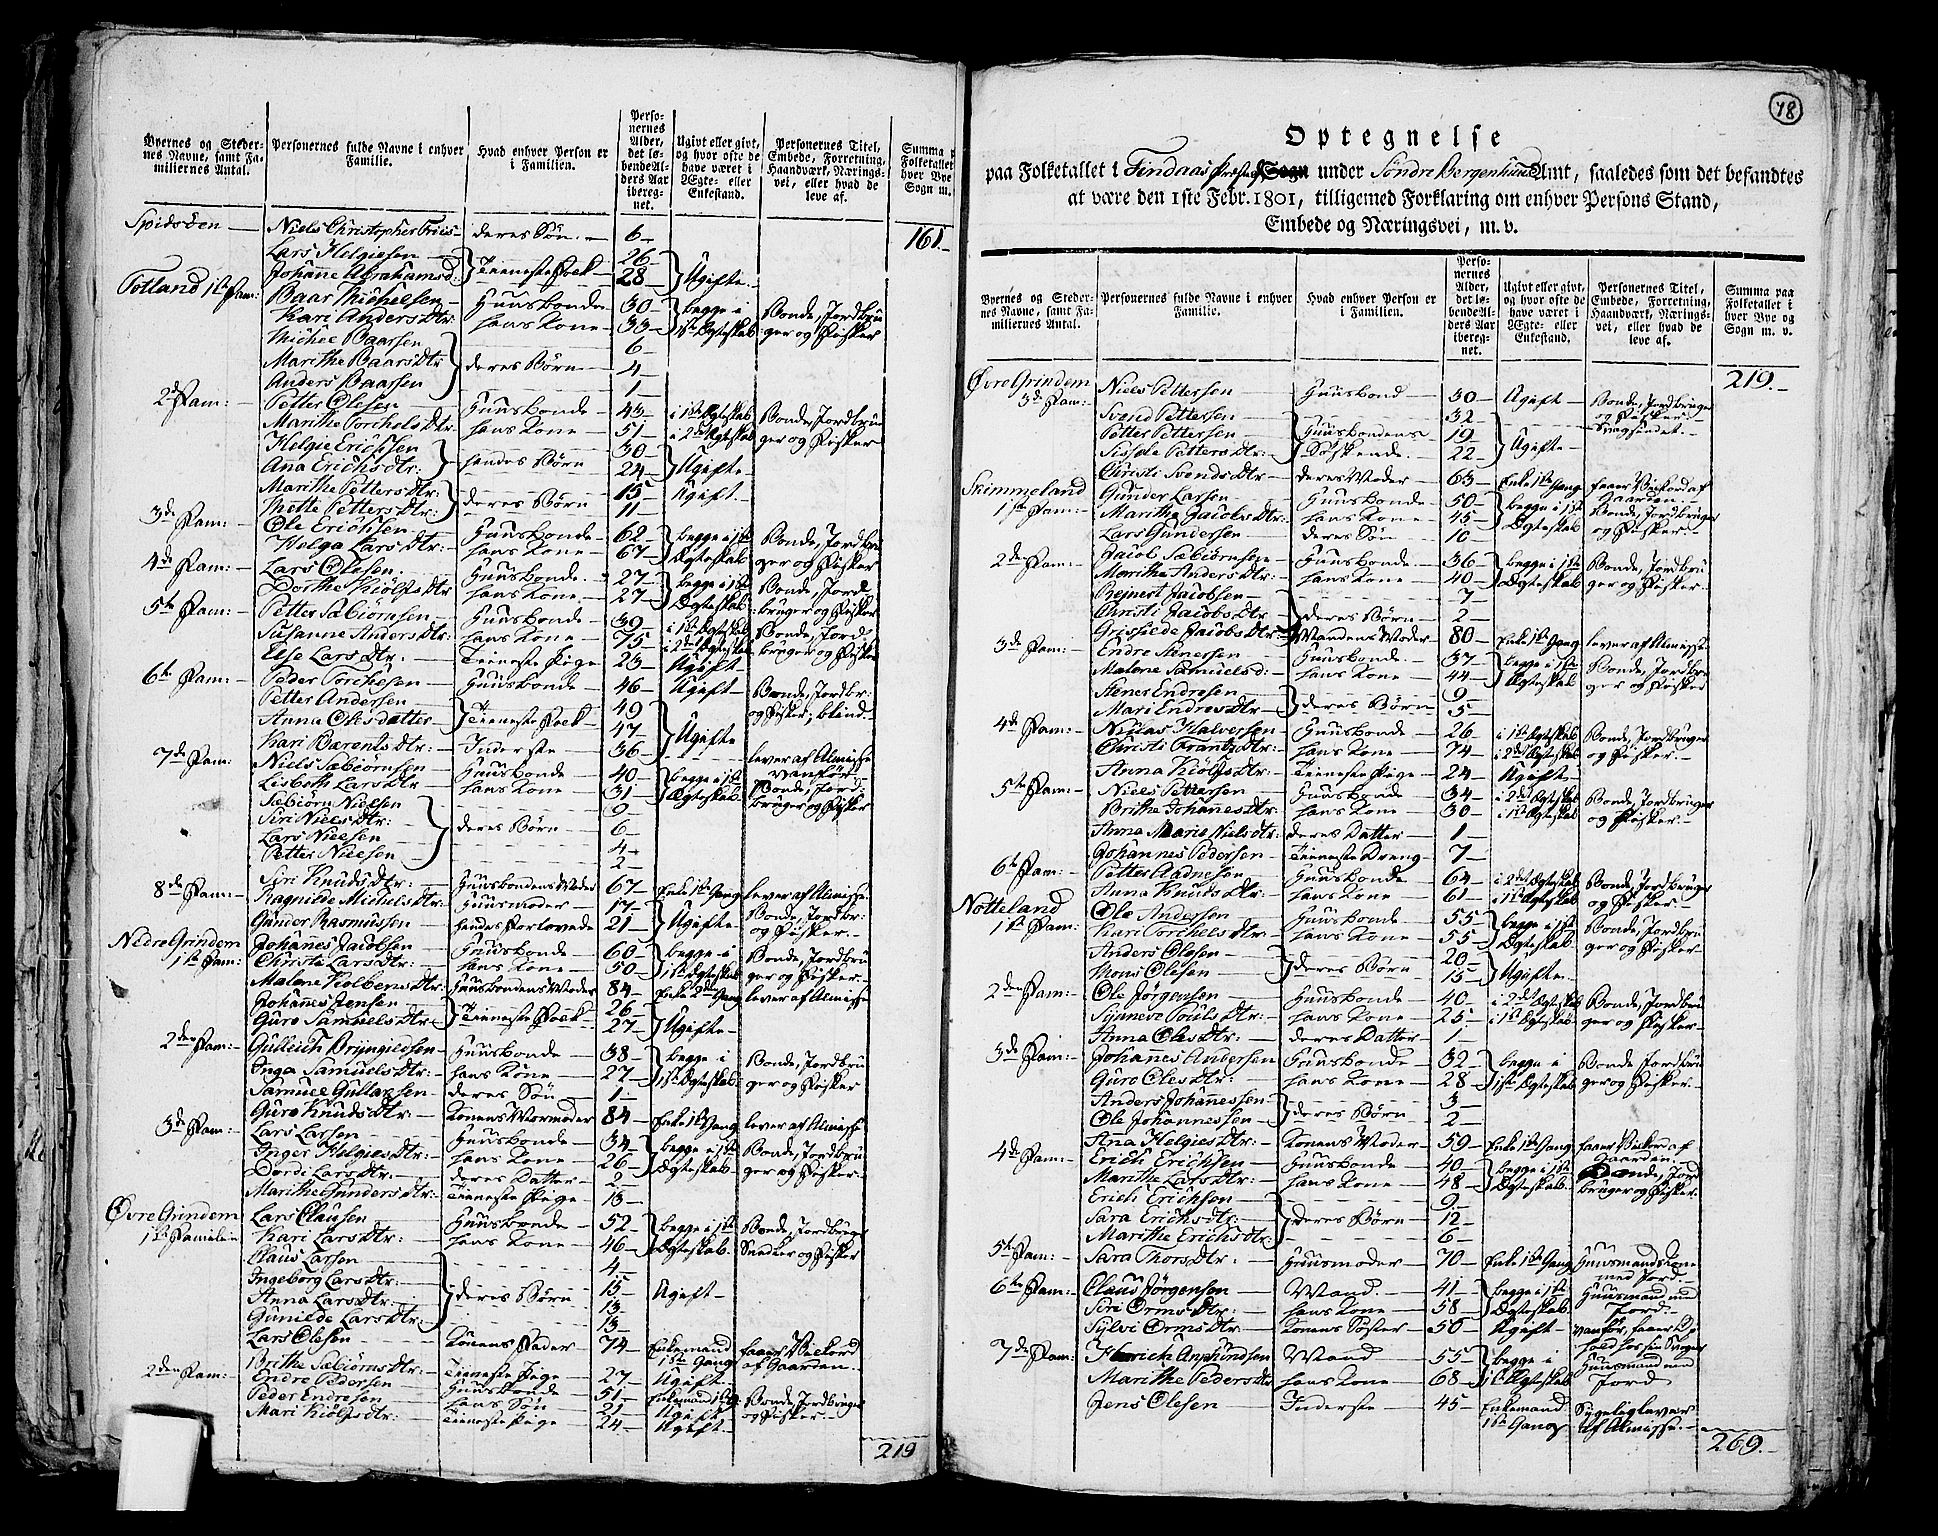 Byernes og Stedernes Navne, samt Familiernes Antal.
Personernes fulde Navne i enhver Familie.
Hvad enhver Person er i Familien.
Personernes Alder, det løbende Alders Aar iberegnet.
Ugivt eller givt, og hvor ofte de have været i Ægte- eller Enkestand.
Personernes Titel, Embede, Forretning, Haandværk, Næringsvei, eller hvad de leve af.
Summa paa Folketallet i hver Bye og Sogn m. v.
Spidsöen Niels Christopher Friis deres Sön 6 161
Lars Helgiesen } Tieneste Folk 26
Johane Abrahamsd: } 28 } Ugifte
Totland 1ste Fam: Baar Michelsen Huusbonde 30 } begge i Bonde, Jordbru
Kari Anders Dtr: hans Kone 33 } 1ste Ægteskab ger og Fisker
Michel Baarsen 6
Marithe Baars Dtr } deres Börn 4
Anders Baarsen 1
2d Fam: Petter Olesen Huusbonde 43 i 1ste Ægteskab Bonde, Jordbru
Marithe Torchels Dtr: hans Kone 51 i 2det Ægteskab ger og Fisker
Helgie Erichsen 30
Ana Erichs dtr: } hendes Börn 24 } Ugifte
Marithe Petters Dtr: 15 Ugift
Mette Petters Dtr: } deres Börn 11
3de Fam: Ole Erichsen Huusbonde 62 } begge i 1ste Bonde, Jordbru
Helga Lars Dtr: hans Kone 67 } Ægteskab ger og Fisker
4de Fam: Lars Olesen Huusbonde 27 } begge i 1ste Bonde, Jord
Dorthe Kiölfs Dtr hans Kone 27 } Ægteskab bruger og Fisker
5te Fam: Petter Sæbiörnsen Huusbonde 39 i 1ste Ægteskab Bonde, Jord
Susanne Anders Dtr: hans Kone 75 i 2det Ægteskab bruger og Fisker
Else Lars Dtr: Tieneste Pige 23 Ugift
6te Fam: Peder Torchelsen Huusbonde 46 Ugift Bonde, Jordbr:
Petter Andersen 49 og Fisker; blind
Anna Oles datter } Tieneste Folk 47 } Ugifte
Kari Bærents Dtr: Inderste 36 lever af Almisse
7de Fam: Niels Sæbiörnsen Huusbonde 40 } begge i 1ste vanför
Lisbeth Lars Dtr hans Kone 31 } Ægteskab Bonde, Jord
Sæbiörn Nielsen 9 bruger og Fisker
Siri Niels Dtr: 6
Lars Nielsen } deres Börn 4
Petter Nielsen 2
Siri Knuds Dtr: Huusbondens Moder 67 Enke 1ste Gang lever af Almisse
8de Fam: Ragnilde Michels Dtr: Huusmoder 17 Bonde, Jordbr:
Gunder Rasmussen hendes Forlovede 21 } Ugifte og Fisker
Nedre Grindem Johanes Jacobsen Huusbonde 60 } begge i Bonde, Jordbru
1ste Fam: Christi Lars Dtr: hans Kone 50 } 1ste Ægteskab ger og Fisker
Malene Kolbens Dtr: Huusbondens Moder 84 Enke 2den Gang lever af Almisse
Johannes Jensen 26
Guro Samuels Dtr: } Tieneste Folk 27 } Ugifte
2den Fam: Gullich Bryngildsen Huusbonde 38 } begge i Bonde, Jordbru
Inga Samuels Dtr: hans Kone 27 } 1ste Ægteskab ger og Fisker
Samuel Gullaksen deres Sön 1
Guro Knuds Dtr: Konens Mormoder 84 Enke 1ste Gang lever af Almisse
3de Fam: Lars Larsen Huusbonde 34 } begge i 1ste Bonde, Jordbru
Inger Helgies Dtr: hans Kone 26 } Ægteskab ger og Fisker
Dordi Lars Dtr: deres Datter 2
Marithe Gunders Dtr: Tieneste Pige 13
Øvre Grindem Lars Clausen Huusbonde 52 } begge i 1ste Bonde, Jordbruger
1ste Familie Kari Lars Dtr: hans Kone 46 } Ægteskab og Fisker
Claus Larsen 4
Ingeborg Lars Dtr: 15 Ugift
Anna Lars Dtr: } deres Börn 13
Gunilde Lars Dtr: 13
Lars Olesen Konens Fader 74 Enkemand 1ste Gang faaer Vilkord af Gaarden
Brithe Sæbiörns Dtr: Tieneste Pige 27 Ugift
2den Fam: Endre Pedersen Huusbonde 51 Enkemand 1ste G: Bonde, Jordbruger
Peder Endresen hans Sön 21 Ugift og Fisker
Mari Kiölfs Dtr: Tieneste Pige 24 Ugift
219
78
Optegnelse
paa Folketallet i Findaas Præste Sogn under Söndre Bergenhuus Amt, saaledes som det befandtes
at være den 1ste Febr. 1801, tilligemed Forklaring om enhver Persons Stand,
Embede og Næringsvei, m. v.
Byernes og Stedernes Navne, samt Familiernes Antal.
Personernes fulde Navne i enhver Familie.
Hvad enhver Person er i Familien.
Personernes Alder, det løbende Alders Aar iberegnet.
Ugivt eller givt, og hvor ofte de have været i Ægte- eller Enkestand.
Personernes Titel, Embede, Forretning, Haandværk, Næringsvei, eller hvad de leve af.
Summa paa Folketallet i hver Bye og Sogn m. v.
219
Øvre Grindem Niels Pettersen Huusbond 30 Ugift Bonde, Jordbruger
3de Fam: Svend Pettersen 32 og Fisker
Petter Pettersen } Huusbondens 19 Svagsindet
Sissele Petters Dtr: } Söskende 22 } Ugifte
Christi Svends Dtr deres Moder 63 Enke 1ste Gang faaer Vilkord af
Skimmeland Gunder Larsen Huusbonde 50 } begge i 1ste Gaarden
1ste Fam: Marithe Jacobs Dtr: hans Kone 45 } Ægteskab Bonde, Jordbruger
Lars Gundersen deres Sön 10 og Fisker
2de Fam: Jacob Sæbiörnsen Huusbonde 36 } begge i 1ste Bonde, Jordbru
Marithe Anders Dtr: hans Kone 40 } Ægteskab ger og Fisker
Reinert Jacobsen 7
Christi Jacobs Dtr } deres Börn 2
Grisilde Jacobs Dtr: Mandens Moder 80 Enke 1ste Gang lever af Almisse
3de Fam: Endre Stenersen Huusbonde 37 } begge i 1ste Bonde, Jordbru
Malene Samuelsd: hans Kone 44 } Ægteskab ger og Fisker
Stener Endresen 9
Mari Endres Dtr } deres Börn 5
4de Fam: Niklas Halversen Huusbonde 26 i 1ste Ægteskab Bonde, Jordbruger
Christi Frantz Dtr: hans Kone 74 i 2det Ægteskab og Fisker
Anna Kiölfs Dtr: Tieneste Pige 24 Ugift
5te Fam: Niels Pettersen Huusbonde 34 i 2det Ægteskab Bonde, Jordbruger
Brithe Johanes Dtr: hans Kone 30 i 1ste Ægteskab og Fisker
Anna Marie Niels Dtr: deres Datter 1
Johannes Pedersen Tieneste Dreng 7
6te Fam: Petter Aadnesen Huusbonde 64 i 2det Ægteskab Bonde, Jordbruger
Anna Knuds Dtr: hans Kone 61 i 1ste Ægteskab og Fisker
Notteland Ole Andersen Huusbonde 55 } begge i 1ste Bonde, Jordbru
1ste Fam: Kari Torchels Dtr: hans Kone 55 } Ægteskab ger og Fisker
Anders Olesen 20
Mons Olesen } deres Börn 15 } Ugifte
2den Fam: Ole Jörgensen Huusbonde 40 i 2det Ægteskab Bonde, Jordbru
Synneve Pouls Dtr: hans Kone 25 i 1ste Ægteskab ger og Fisker
Anna Oles Dtr: deres Datter 1
3de Fam: Johanes Andersen Huusbonde 32 } begge i Bonde Jordbru
Guro Oles Dtr: hans Kone 28 } 1ste Ægteskab ger og Fisker
Anders Johannessen 3
Ole Johannessen } deres Börn 2
Ana Helgies Dtr: Konens Moder 59 Enke 1ste Gang faaer Vilkord af
4de Fam: Erich Erichsen Huusbonde 40 } begge i 1ste Gaarden
Marithe Lars Dtr: hans Kone 48 } Ægteskab Bonde, Jord
Erich Erichsen 9 bruger og Fisker
Sara Erichs Dtr: } deres Börn 12
Marithe Erichs Dtr 6
5te Fam: Sara Thors Dtr: Huusmoder 70 Enke 1ste Gang Huusmandskone med Jord
6te Fam: Claus Jörgensen Mand 41 } begge i 1ste Huusmand med
Siri Orms Dtr: hans Kone 58 } Ægteskab Jord
Sylvi Orms Dtr: Konens Söster 50 Ugift vanför, faaer
7de Fam: Henrich Amundsen Mand 55 } begge i Huusmand med
Marithe Peders Dtr hans Kone 68 } 1ste Ægteskab Jord
Jens Olesen Inderste 45 Enkemand 1ste Gang Sygelig lever af Almisse
269